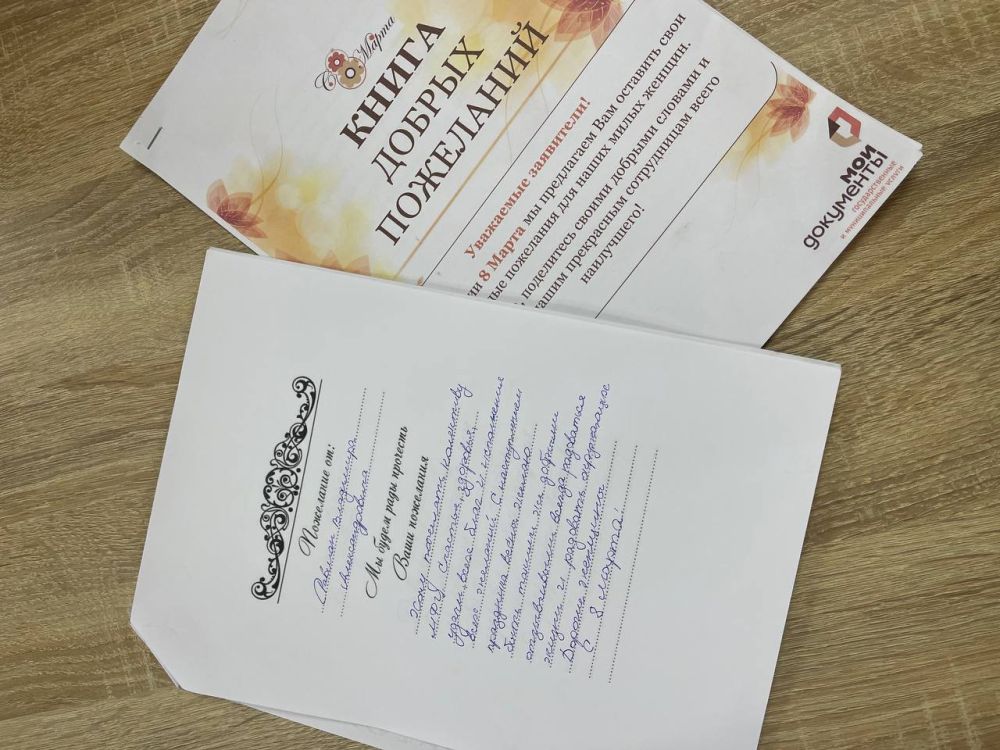 С 8 Марта
КНИГА
ДОБРЫХ
ПОЖЕЛАНИЙ
Уважаемые заявители!
ии 8 Марта мы предлагаем Вам оставить свои
ые пожелания для наших милых женщин.
, поделитесь своими добрыми словами и
ашим прекрасным сотрудницам всего
наилучшего!
мои
документы
государственные
и муниципальные услуги
Пожелание от:
Владимира
Александровича
Мы будем рады прочесть
Ваши пожелания
Хочу пожелать коллективу
МФЦ счастья, здоровья,
удачи, всех благ и исполнения
всех желаний. С наступлением
праздника весны желаю
быть такими же добрыми
отзывчивыми всегда радоваться
жизни и радовать окружающих
Дорогие женщины
С 8 Марта!